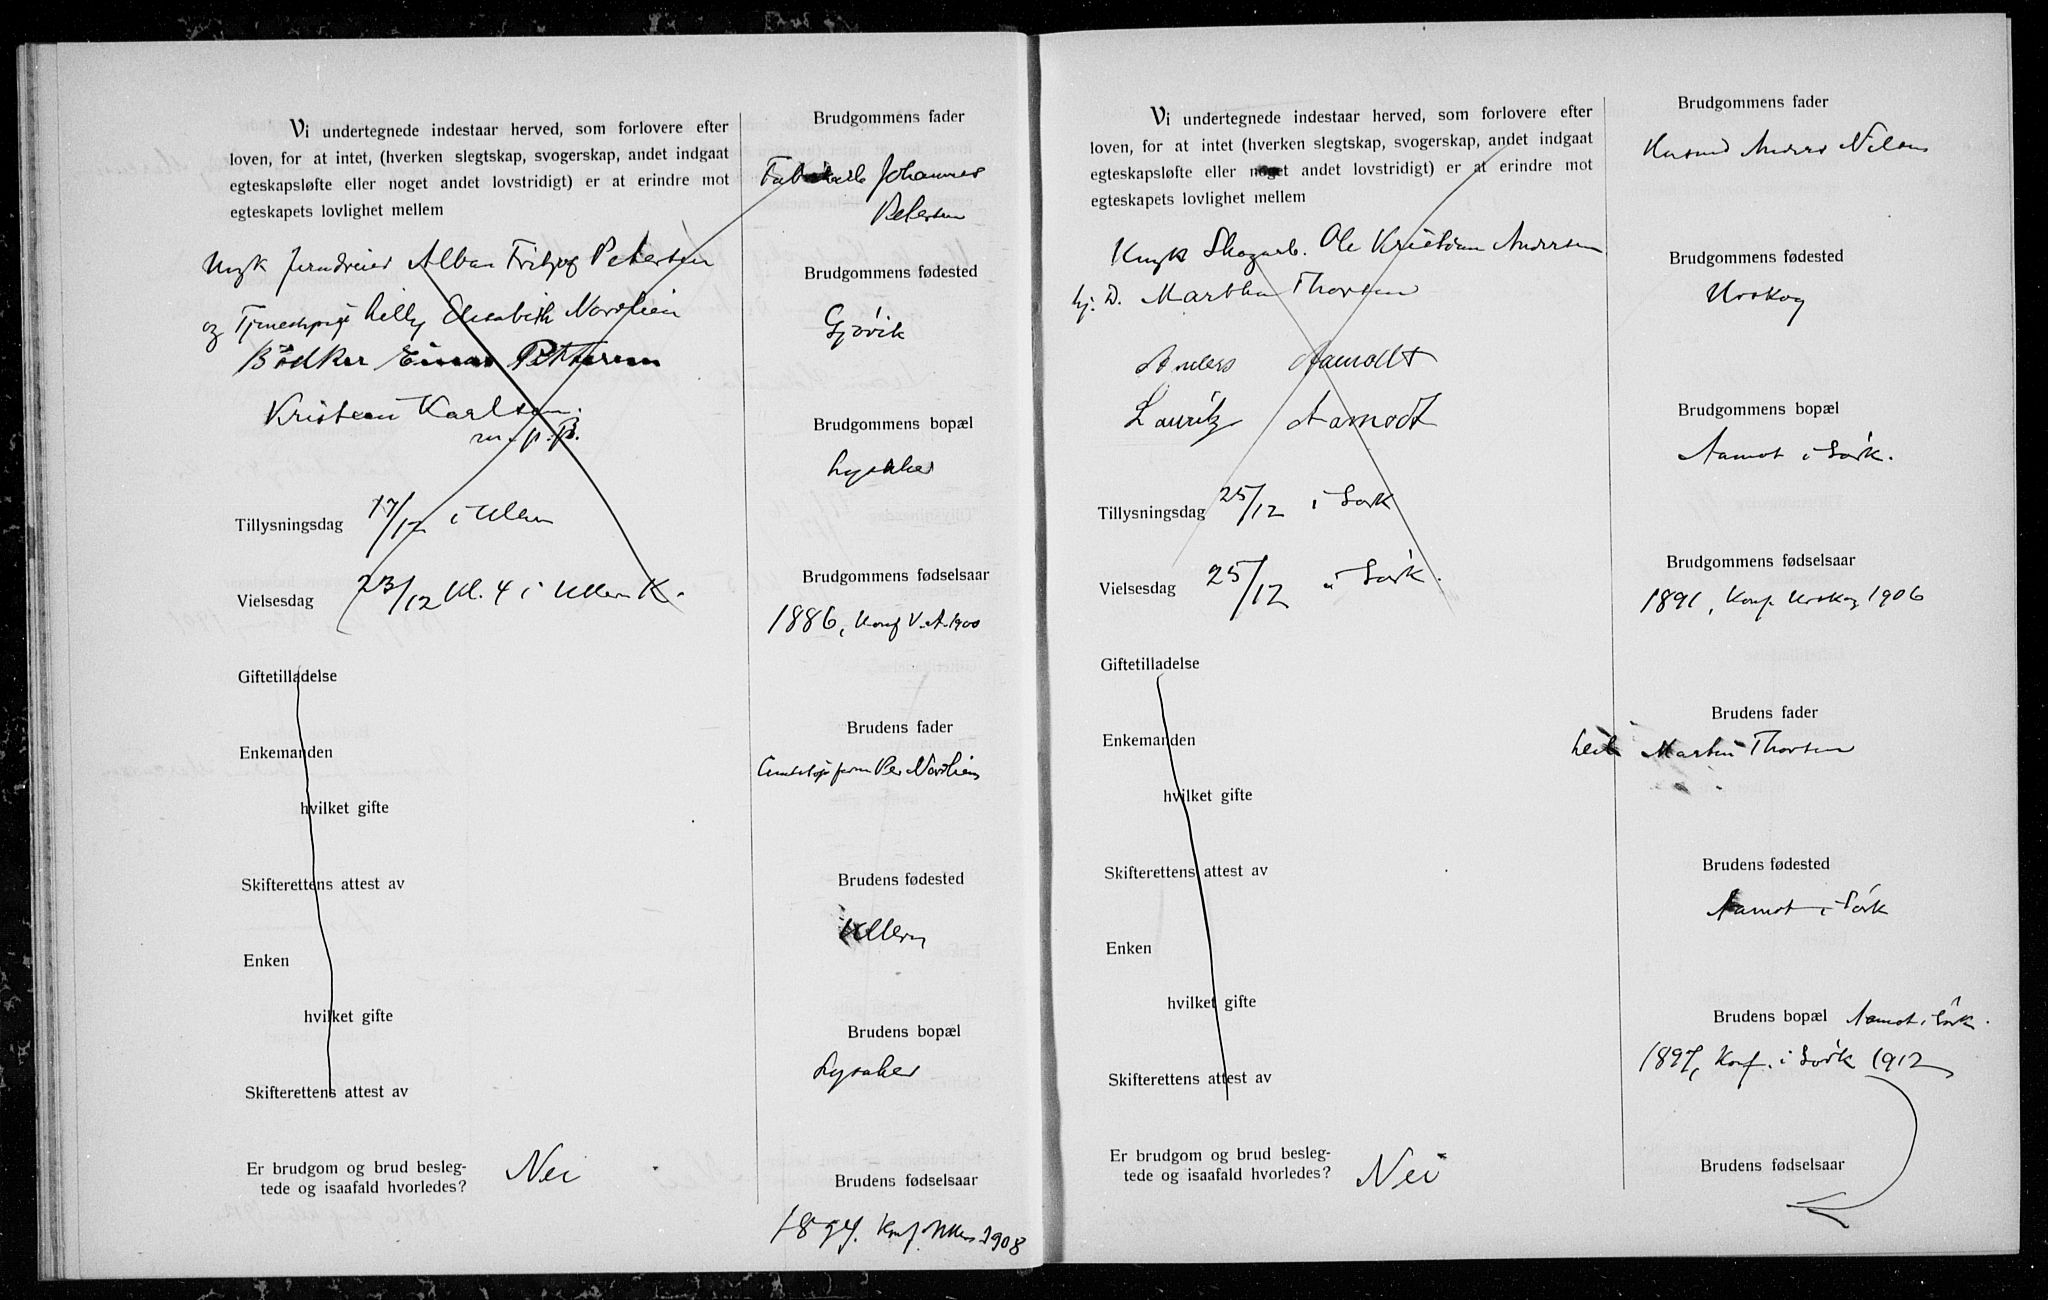 Vi undertegnede indestaar herved, som forlovere efter
loven, for at intet, (hverken slegtskap, svogerskap, andet indgaat
egteskapsløfte eller noget andet lovstridigt) er at erindre mot
egteskapets lovlighet mellem
Petersen
og Elisabeth Nordlien
Bødker Einar Pettersen
Kristian Karlsen.
m. p. p.
Tillysningsdag 17/12 i Ullern
Vielsesdag 23/12 Kl. 4 i Ullern K.
Giftetilladelse
Enkemanden
hvilket gifte
Skifterettens attest av
Enken
hvilket gifte
Skifterettens attest av
Er brudgom og brud besleg-
tede og isaafald hvorledes? Nei
Brudgommens fader
Johannes
Petersen
Brudgommens fødested
Gjøvik
Brudgommens bopæl
Lysaker
Brudgommens fødselsaar
1886, Konf V. A. 1900
Brudens fader
Per Nordlien
Brudens fødested
Ullern
Brudens bopæl
Lysaker
Brudens fødselsaar
1894. Konf. Ullern 1908
Vi undertegnede indestaar herved, som forlovere efter
loven, for at intet, (hverken slegtskap, svogerskap, andet indgaat
egteskapsløfte eller noget andet lovstridigt) er at erindre mot
egteskapets lovlighet mellem
Ungk Skogarb. Ole Kristian Andersen
hj. D. Martha Thorsen
Anders Aamodt
Lauritz Aamodt
Tillysningsdag 25/12 i Sørk
Vielsesdag 25/12 i Sørk.
Giftetilladelse
Enkemanden
hvilket gifte
Skifterettens attest av
Enken
hvilket gifte
Skifterettens attest av
Er brudgom og brud besleg-
tede og isaafald hvorledes? Nei
Brudgommens fader
Husmd Anders Nilsen
Brudgommens fødested
Urskog
Brudgommens bopæl
Aamot i Sørk.
Brudgommens fødselsaar
1891, Konf. Urskog 1906
Brudens fader
Martin Thorsen
Brudens fødested
Aamot i Sørk
Brudens bopæl Aamot i Sørk.
1897, Konf. i Sørk 1912
Brudens fødselsaar